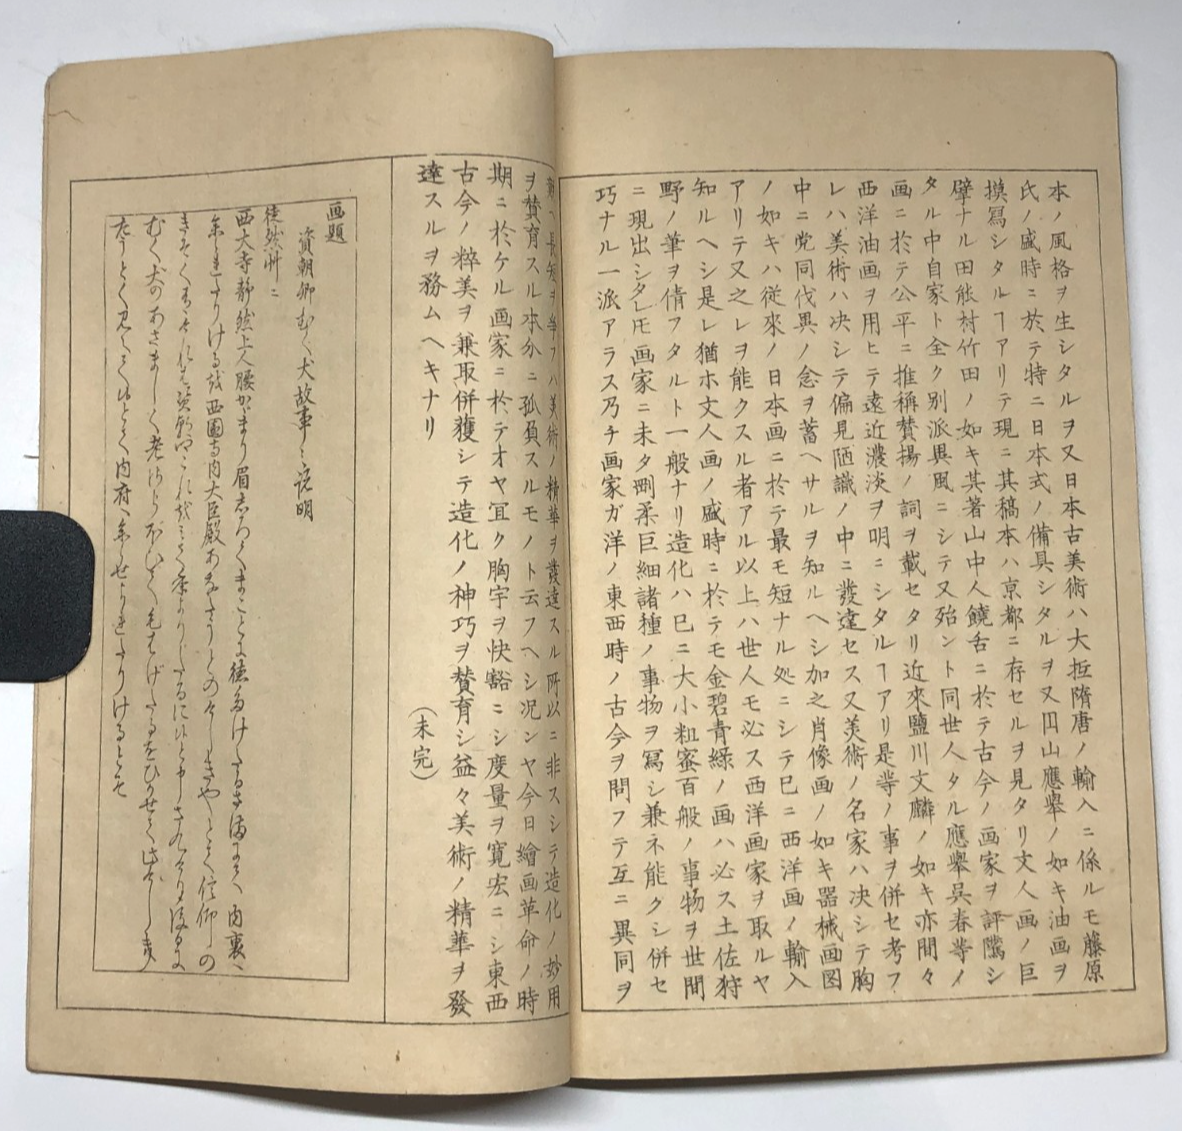 本ノ風格ヲ生シタルヲ又日本古美術ハ大抵隋唐ノ輸入ニ係ルモ藤原
氏ノ盛時ニ於テ特ニ日本式ノ備具シタルヲ又円山應擧ノ如キ油画ヲ
摸寫シタルヿアリテ現ニ其稿本ハ京都ニ存セルヲ見タリ文人画ノ巨
擘ナル田能村竹田ノ如キ其著山中人饒舌ニ於テ古今ノ画家ヲ評隲シ
タル中自家ト全ク別派異風ニシテ又殆ント同世人タル應擧呉春等ノ
画ニ於テ公平ニ推稱賛揚ノ詞ヲ載セタリ近來鹽川文麟ノ如キ亦間々
西洋油画ヲ用ヒテ遠近濃淡ヲ明ニシタルヿアリ是等ノ事ヲ併セ考フ
レハ美術ハ决シテ偏見陋識ノ中ニ發達セス又美術ノ名家ハ决シテ胸
中ニ党同伐異ノ念ヲ蓄ヘサルヲ知ルヘシ加之肖像画ノ如キ器械画図
ノ如キハ從來ノ日本画ニ於テ最モ短ナル処ニシテ巳ニ西洋画ノ輸入
アリテ又之レヲ能クスル者アル以上ハ世人モ必ス西洋画家ヲ取ルヤ
知ルヘシ是レ猶ホ文人画ノ盛時ニ於テモ金碧青緑ノ画ハ必ス土佐狩
野ノ筆ヲ倩フタルト一般ナリ造化ハ巳ニ大小粗蜜百般ノ事物ヲ世間
ニ現出シタレㇳモ画家ニ未タ剛柔巨細諸種ノ事物ヲ寫シ兼ネ能クシ併セ
巧ナル一派アラス乃チ画家ガ洋ノ東西時ノ古今ヲ問フテ互ニ異同ヲ
長短ヲ爭フハ美術ノ精華ヲ發達スル所以ニ非スシテ造化ノ妙用
ヲ賛育スル本分ニ孤負スルモノト云フヘシ况ンヤ今日繪画革命ノ時
期ニ於ケル画家ニ於テオヤ宜ク胸宇ヲ快豁ニシ度量ヲ寛宏ニシ東西
古今ノ粹美ヲ兼取併獲シテ造化ノ神巧ヲ賛育シ益々美術ノ精華ヲ發
達スルヲ務ムヘキナリ
（未完）
画題
資朝卿むく犬故事ノ説明
徒然艸ニ
西大寺静然上人腰かゞまり眉しろくまことに徳たけたるさまにて内裏へ
まゐられたりける越西園寺内大臣殿あなたうとのけしきやとて信仰の
きそくありければ資朝卿これ越みて年よりじたるにひと申されけり後日に
むく犬のあさましく老さらぼひて毛はげたるをひかせて此けしき
たうとく見えてひとて内府へまゐらせられたりけるとそ